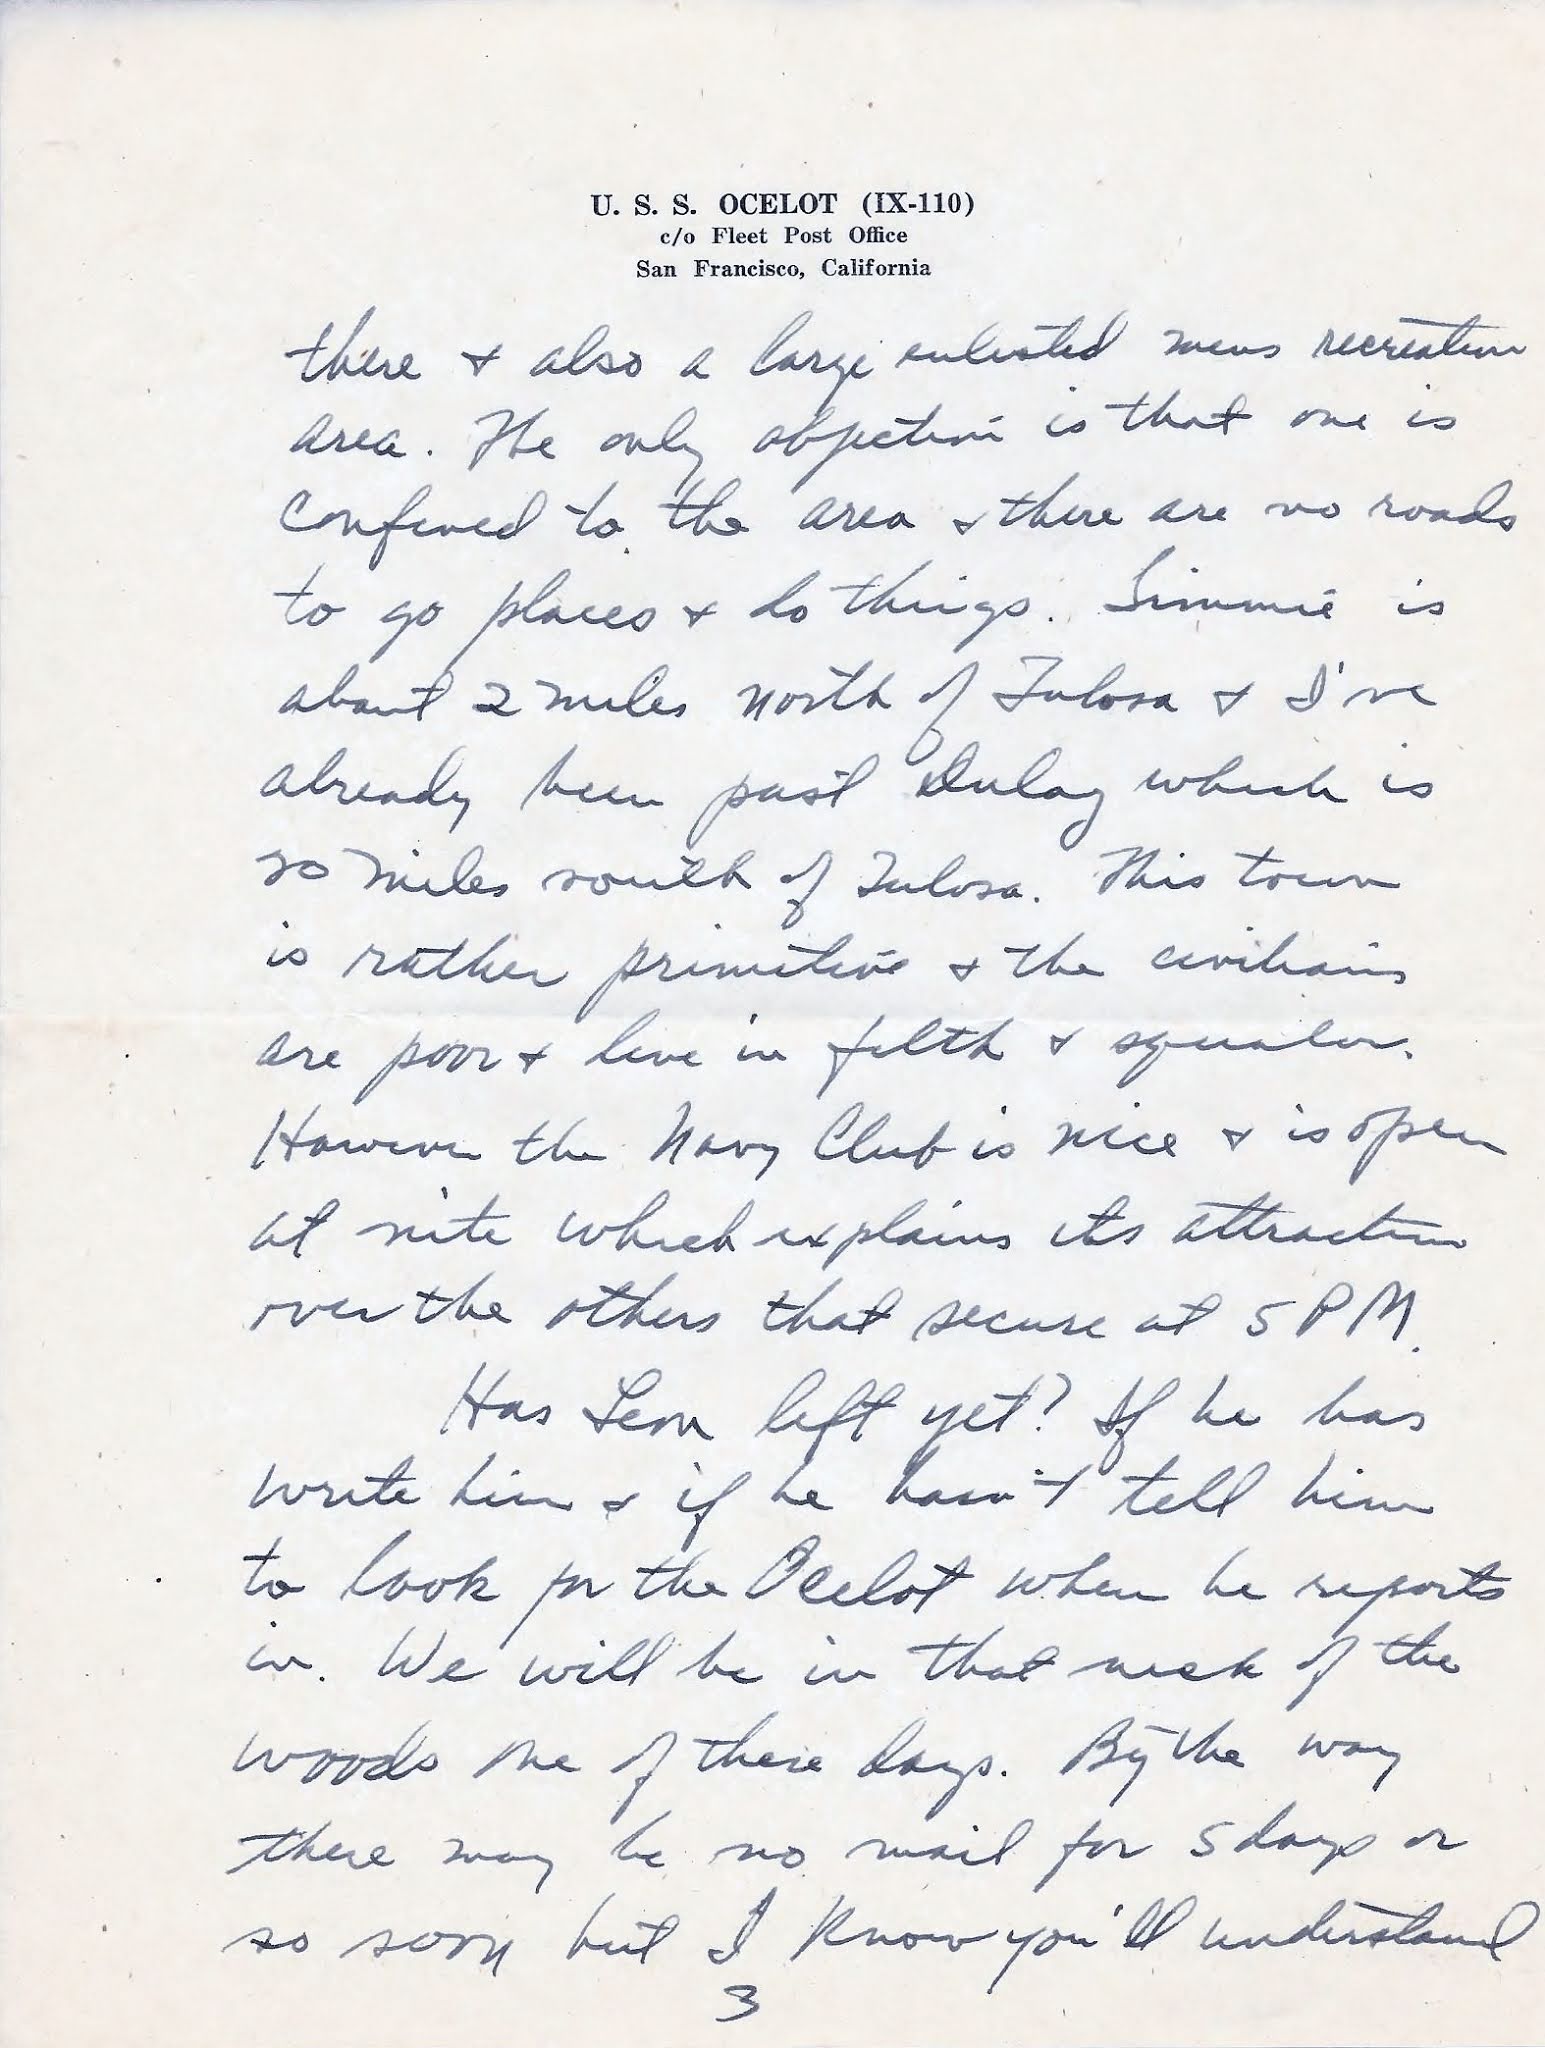 U. S. S. OCELOT (IX-110)
c/o Fleet Post Office
San Francisco, California
there & also a large enlisted mens recreation
area. The only objection is that one is
confined to the area & there are no roads
to go places & do things. Simmie is
about 2 miles north of Tulosa & I've
already been past Dulag which is
20 miles south of Tulosa. This town
is rather primitive & the civilians
are poor & live in filth & squalor.
However the Navy Club is nice & is open
at nite which explains its attraction
over the others that secure at 5 PM.
Has Leon left yet? If he has
write him & if he hasn't tell him
to look for the Ocelot when he reports
in. We will be in that neck of the
woods one of these days. By the way
there may be no mail for 5 days or
so soon but I know you'll understand
3